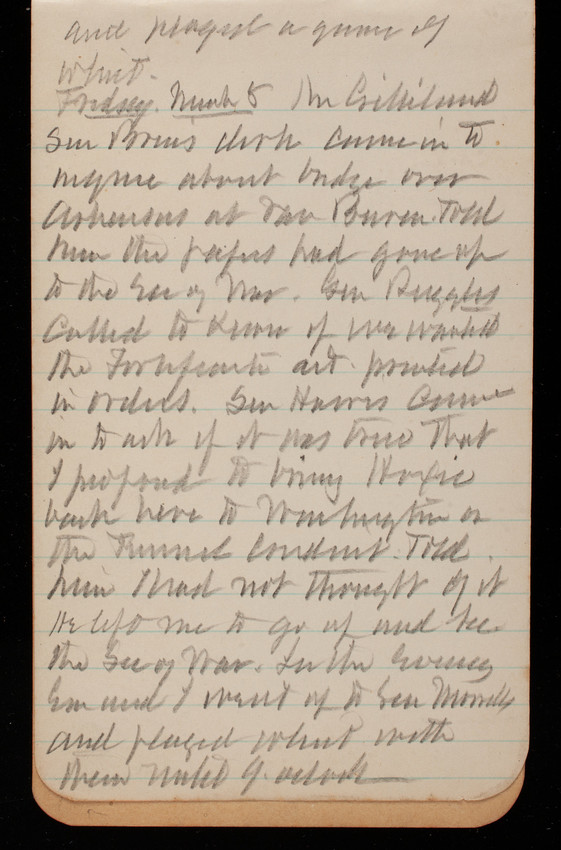 and played a game of
whist.
Friday. March 8 Mr Gilliland
Sen Berrys clerk came in to
inquire about bridge over
Arkansas at Van Buren. Told
him the papers had gone up
to the Sec of War. Gen Ruggles
Called to know if we wanted
the Fortification act printed
in orders. Sen Harris came
in to ask if it was true that
I proposed to bring Hoxie
back here to Washington on
the Tunnel Conduit. Told
him I had not thought of it
He left me to go up and see
the Sec of War. In the Evening
Em and I went up to Sen Morrills
and played whist with
them until 9 oclock